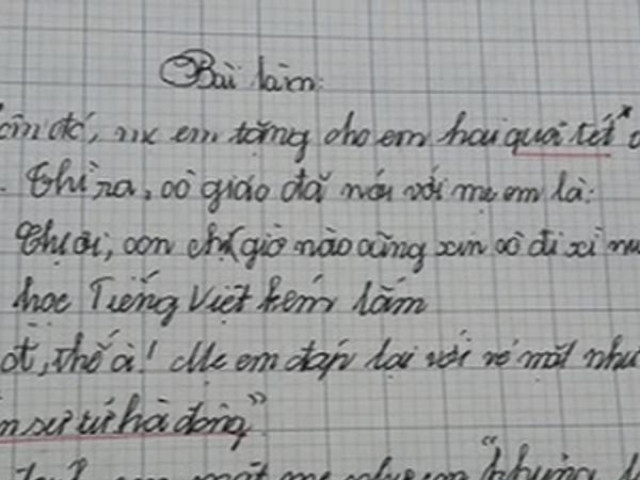 Bài làm:
đó, mẹ em tặng cho em hai quả tết"
. Thì ra, cô giáo đã nói với mẹ em là:
Chị ơi, con chị giờ nào cũng xin cô đi xì
học Tiếng Việt kém lắm
ột, thế à! Mẹ em đáp lại với vẻ mặt như
sư tử hà đông"